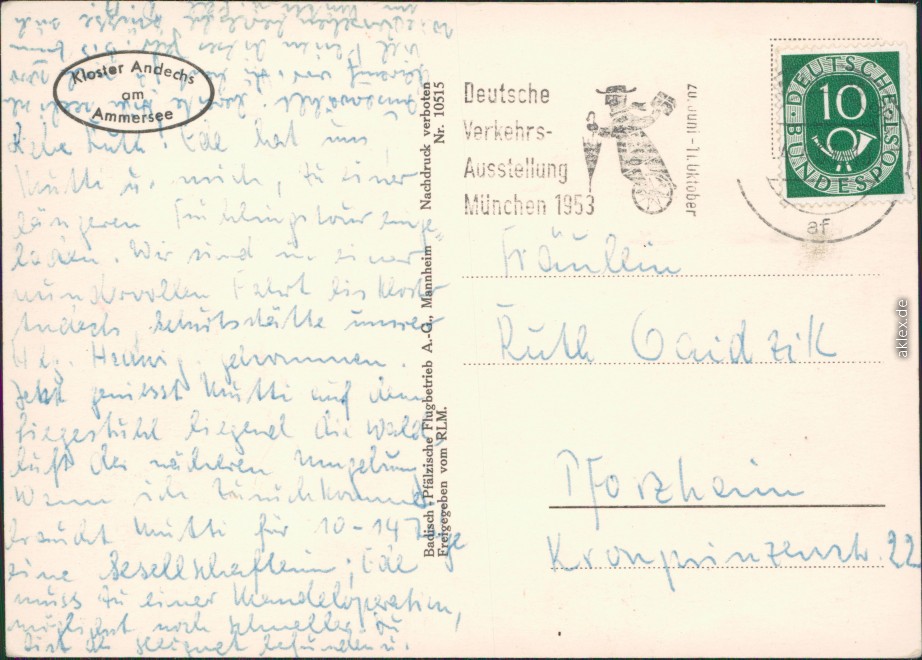 Kloster Andechs
am
Ammersee
Liebe Ruth! Ede hat uns,
Mutti u. mich, zu einer
längeren Frühlingstour einge
laden. Wir sind in einer
wundervollen Fahrt bis Kloster
Andechs, Geburtsstätte unserer
Hlg. Hedwig, gekommen.
Jetzt geniesst Mutti auf dem
Liegestuhl liegend die Wald
luft der näheren Umgebung.
Wenn ich zurückkomme,
braucht Mutti für 10-14 Tage
eine Gesellschafterin; Ede
muss zu einer Mandeloperation,
möglichst noch schneller, Du
bist als geeignet befunden u.
Badisch-Pfälzische Flugbetrieb A.-G., Mannheim Nachdruck verboten
Freigegeben vom RLM. Nr. 10515
Deutsche
Verkehrs-
Ausstellung
München 1953
20. Juni - 11. Oktober
DEUTSCHE
BUNDESPOST
10
af
Fräulein
Ruth Gaidzik
Pforzheim
Kronprinzenstr. 22
aklex.de